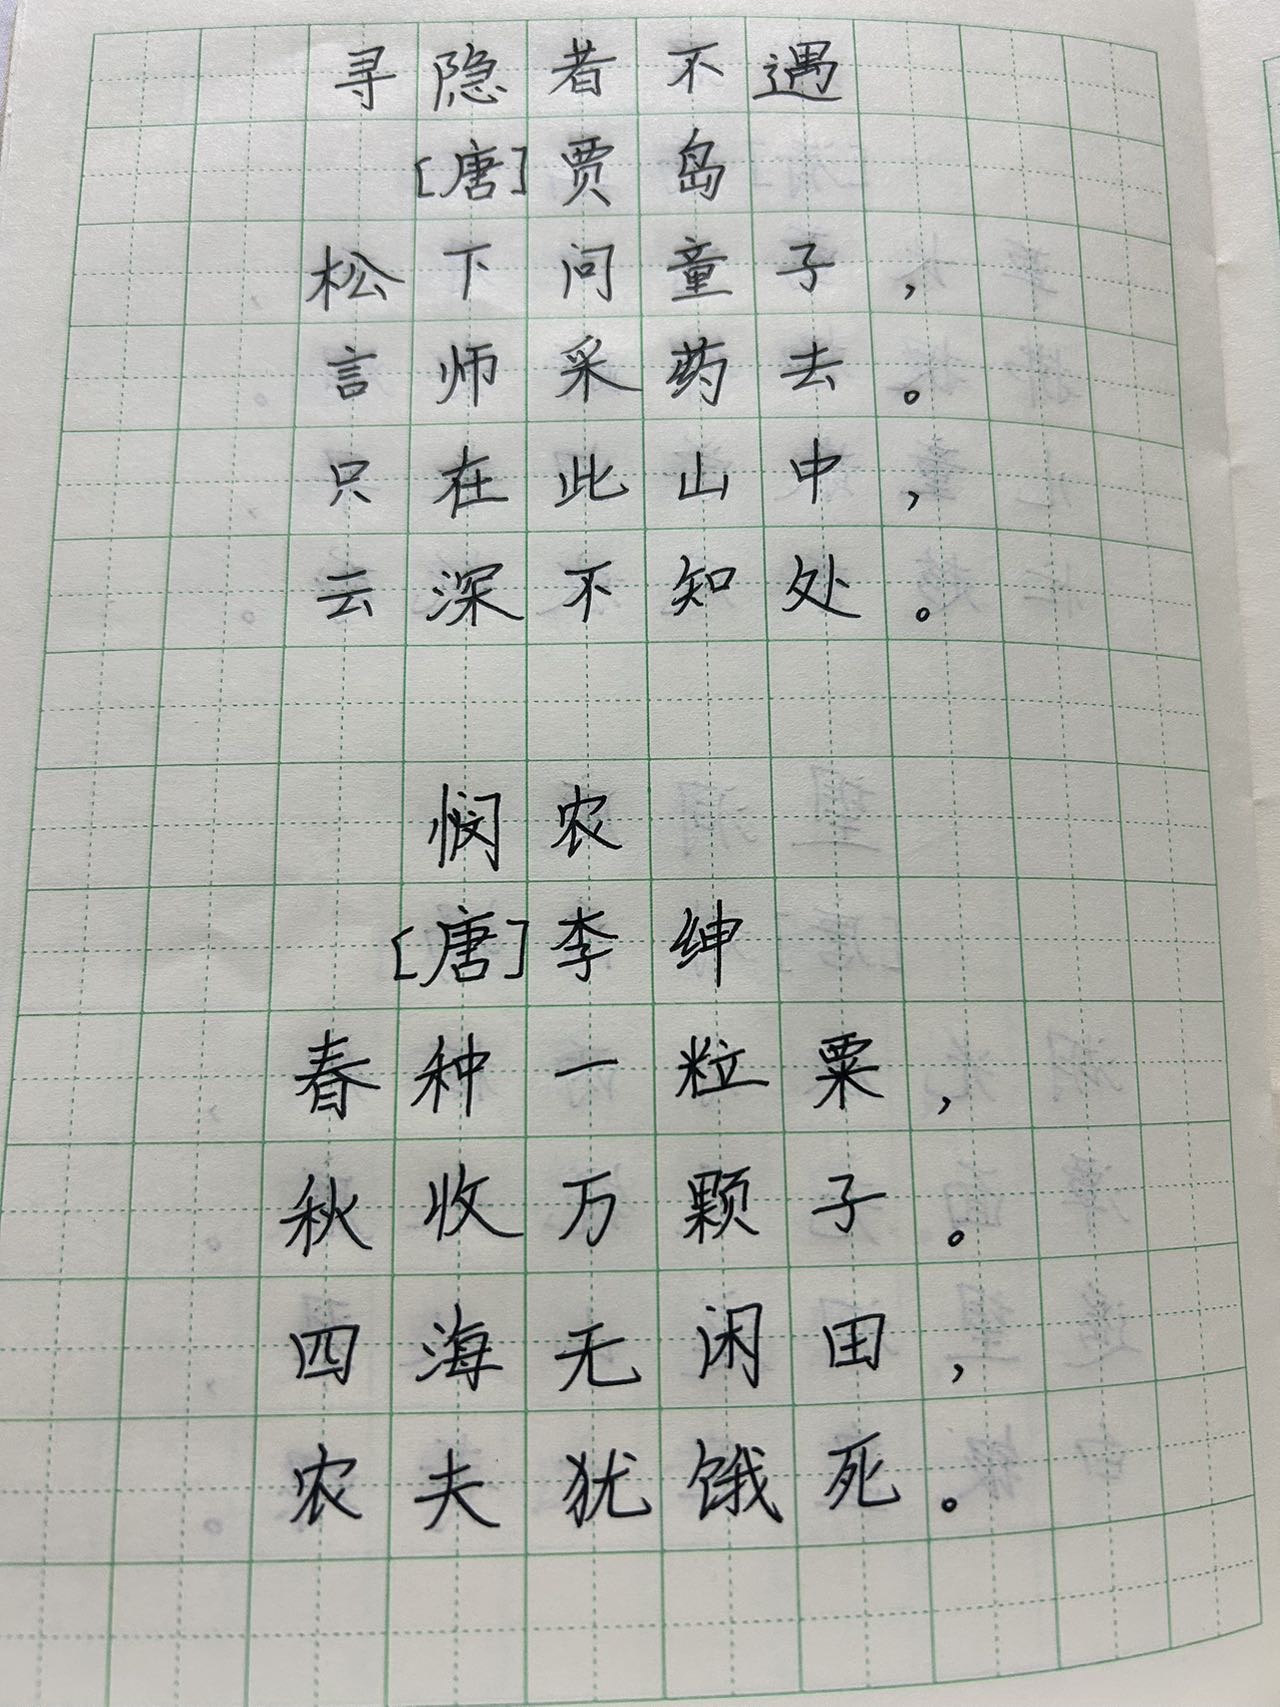 寻隐者不遇
[唐]贾岛
松下问童子，
言师采药去。
只在此山中，
云深不知处。
悯农
[唐]李绅
春种一粒粟，
秋收万颗子。
四海无闲田，
农夫犹饿死。